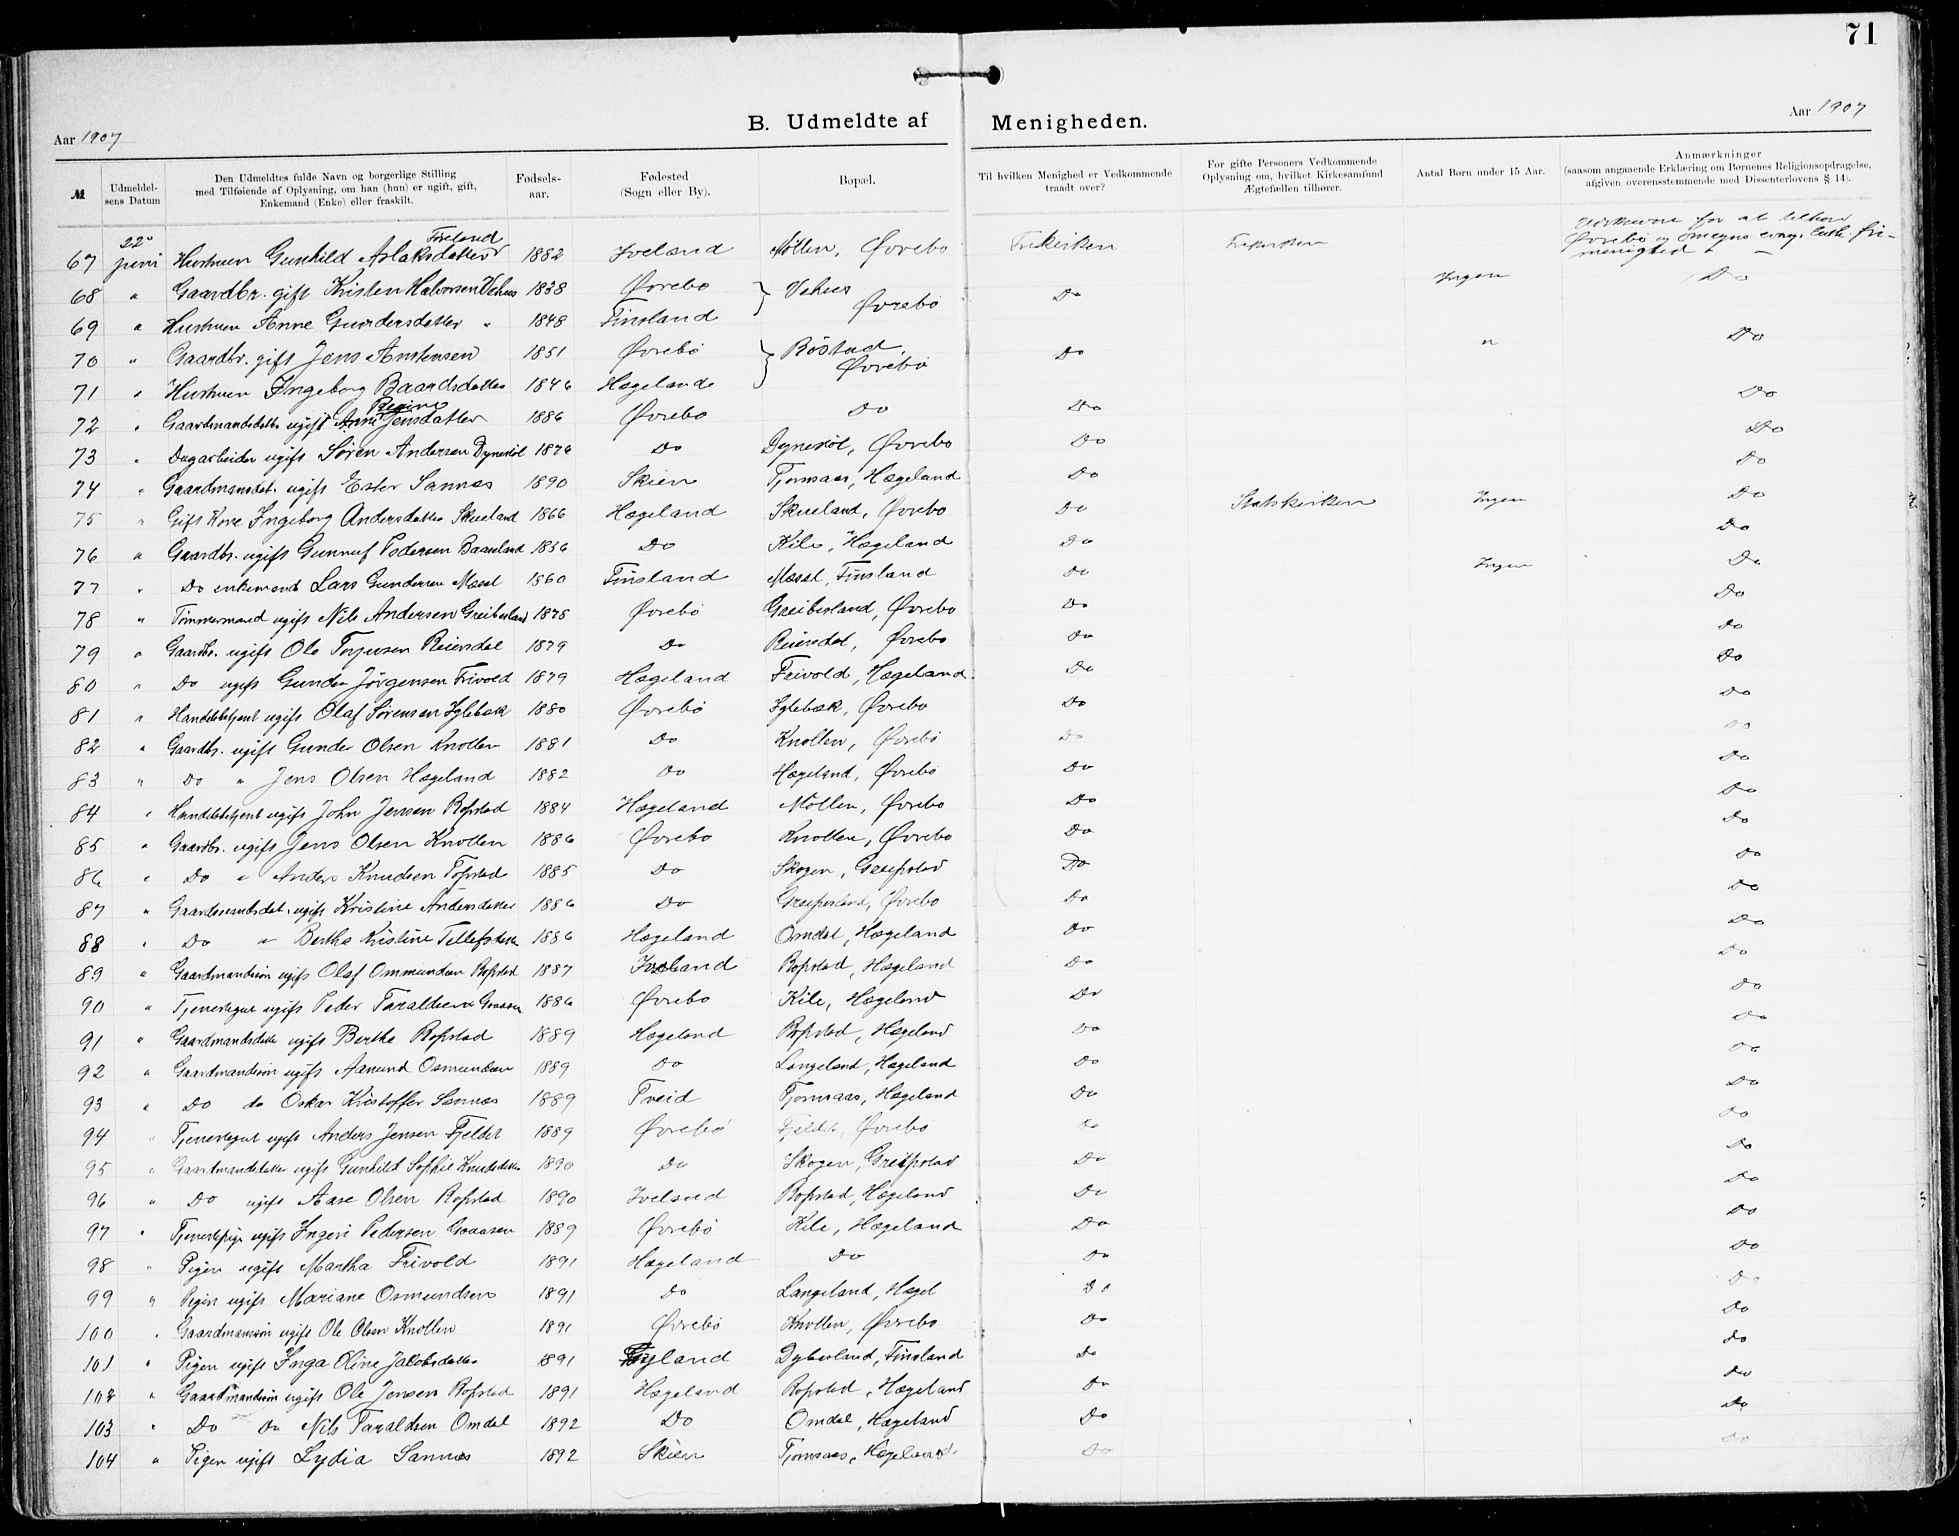 71
Aar 1907
B. Udmeldte af Menigheden.
Aar 1907
№ | Udmeldelsens Datum | Den Udmeldtes fulde Navn og borgerlige Stilling med Tilføiende af Oplysning, om han (hun) er ugift, gift, Enkemand (Enke) eller fraskilt. | Fødselsaar. | Fødested (Sogn eller By). | Bopæl. | Til hvilken Menighed er Vedkommende traadt over? | For gifte Personers Vedkommende Oplysning om, hvilket Kirkesamfund Ægtefællen tilhører. | Antal Børn under 15 Aar. | Anmærkninger (saasom angaaende Erklæring om Børnenes Religionsopdragelse, afgiven overensstemmende med Dissenterlovens § 14).
67 22 juni Hustruen Gunhild Aslaksdatter Foreland 1882 Iveland Møllen, Øvrebø Frikirken Frikirken for at tilhøre Øvrebø og omegns evang. luth. frimenighed
68 " Gaardbr. gift Kristen Halvorsen Vehus 1838 Øvrebø } Vehus Øvrebø Do Ingen Do
69 " Hustruen Anne Gundersdatter " 1848 Finsland
70 " Gaardbr. gift Jens Anstensen 1851 Øvrebø } Røstad, Øvrebø Do " Do
71 " Hustruen Ingeborg Baardsdatter 1846 Hægeland
72 " Gaardmandsdatter ugift Anne Regine Jensdatter 1886 Øvrebø Do Do Do
73 " Dagarbeider ugift Søren Andersen Dynestøl 1876 Do Dynestøl, Øvrebø Do Do
74 " Gaardmandsdat. ugift Ester Sannæs 1890 Skien Tjomsaas, Hægeland Do Do
75 " Gift Kone Ingeborg Andersdatter Skueland 1866 Hægeland Skueland, Øvrebø Do Statskirken Ingen Do
76 " Gaardbr. ugift Gunnuf Pedersen 1836 Do Kile, Hægeland Do Do
77 " Do enkemand Lars Gundersen Mæsel 1860 Finsland Mæsel, Finsland Do Ingen Do
78 " Tømmermand ugift Nils Andersen Greibesland 1878 Øvrebø Greibesland, Øvrebø Do Do
79 " Gaardbr. ugift Ole Torjusen Reiersdal 1879 Do Reiersdal, Øvrebø Do Do
80 " Do ugift Gunder Jörgensen Frivold 1879 Hægeland Frivold, Hægeland Do Do
81 " Handelsbetjent ugift Olaf Sørensen Iglebæk 1880 Øvrebø Iglebæk, Øvrebø Do Do
82 " Gaardbr. ugift Gunder Olsen Knollen 1881 Do Knollen, Øvrebø Do Do
83 " Do " Jens Olsen Hægeland 1882 Do Hægeland, Øvrebø Do Do
84 " Handelsbetjent ugift John Jensen Ropstad 1884 Hægeland Møllen, Øvrebø Do Do
85 " Gaardbr. ugift Jens Olsen Knollen 1886 Øvrebø Knollen, Øvrebø Do Do
86 " Do " Anders Knudsen 1885 Do Skogen, Greipstad Do Do
87 " Gaardmandsdat. ugift Kristine Andersdatter 1886 Do Øvrebø Do Do
88 " Do " Bertha Kristine Tellefsdatter 1886 Hægeland Omdal, Hægeland Do Do
89 " Gaardmandssøn ugift Olaf Ommundsen Ropstad 1887 Iveland Ropstad, Hægeland Do Do
90 " Tjenestegut ugift Peder Taraldsen 1886 Øvrebø Kile, Hægeland Do Do
91 " Gaardmandsdatter ugift Bertha Ropstad 1889 Hægeland Ropstad, Hægeland Do Do
92 " Gaardmandssøn ugift Aanund Osmundsen 1889 Do Langeland, Hægeland Do Do
93 " Do do Oskar Kristoffer Sannæs 1889 Tveid Tjomsaas, Hægeland Do Do
94 " Tjenestegut ugift Anders Jensen Fjeldet 1889 Øvrebø Fjeldet, Øvrebø Do Do
95 " Gaardmandsdatter ugift Gunhild Sophie Knudsdatter 1890 Do Skogen, Greipstad Do Do
96 " Do ugift Aase Olsen Ropstad 1890 Iveland Ropstad, Hægeland Do Do
97 " Tjenestepige ugift Ingeri Pedersen 1889 Øvrebø Kile, Hægeland Do Do
98 " Pigen ugift Martha Frivold 1891 Hægeland Do Do Do
99 " Pigen ugift Mariane Osmundsen 1891 Do Langeland, Hægel Do Do
100 " Gaardmanssøn ugift Ole Olsen Knollen 1891 Øvrebø Knollen, Øvrebø Do Do
101 " Pigen ugift Inga Oline Jakobsdatter 1891 Fyland Dybesland, Finsland Do Do
102 " Gaardmandssøn ugift Ole Jensen Ropstad 1891 Hægeland Ropstad, Hægeland Do Do
103 " Do Do Nils Taraldsen Omdal 1892 Do Omdal, Hægeland Do Do
104 " Pigen ugift Lydia Sannæs 1892 Skien Tjomsaas, Hægeland Do Do